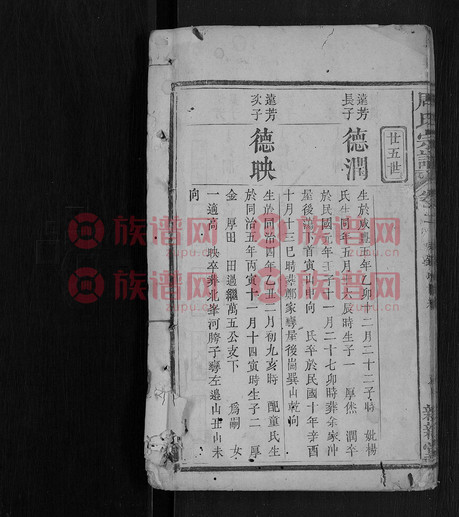 廿五世
遠芳
長子
德潤
生於咸豐五年乙卯十二月二十二子時 妣楊
氏生同年五月六辰時生子一 厚恷 潤卒
於民國元年壬子十一月二十七卯時葬余家冲
屋後 下首寅山 向 氏卒於民國十年辛酉
十月十三巳時葬鄭家塆屋後崗巽山乾向
遠芳
次子
德映
生於同治四年乙丑二月初九亥時 配童氏生
於同治五年丙寅十一月十四寅時生子二 厚
金 厚田 田過繼萬五公支下 為嗣 女
一適高 映卒葬北峯河勝子塆左邊山丑山未
向
族谱网